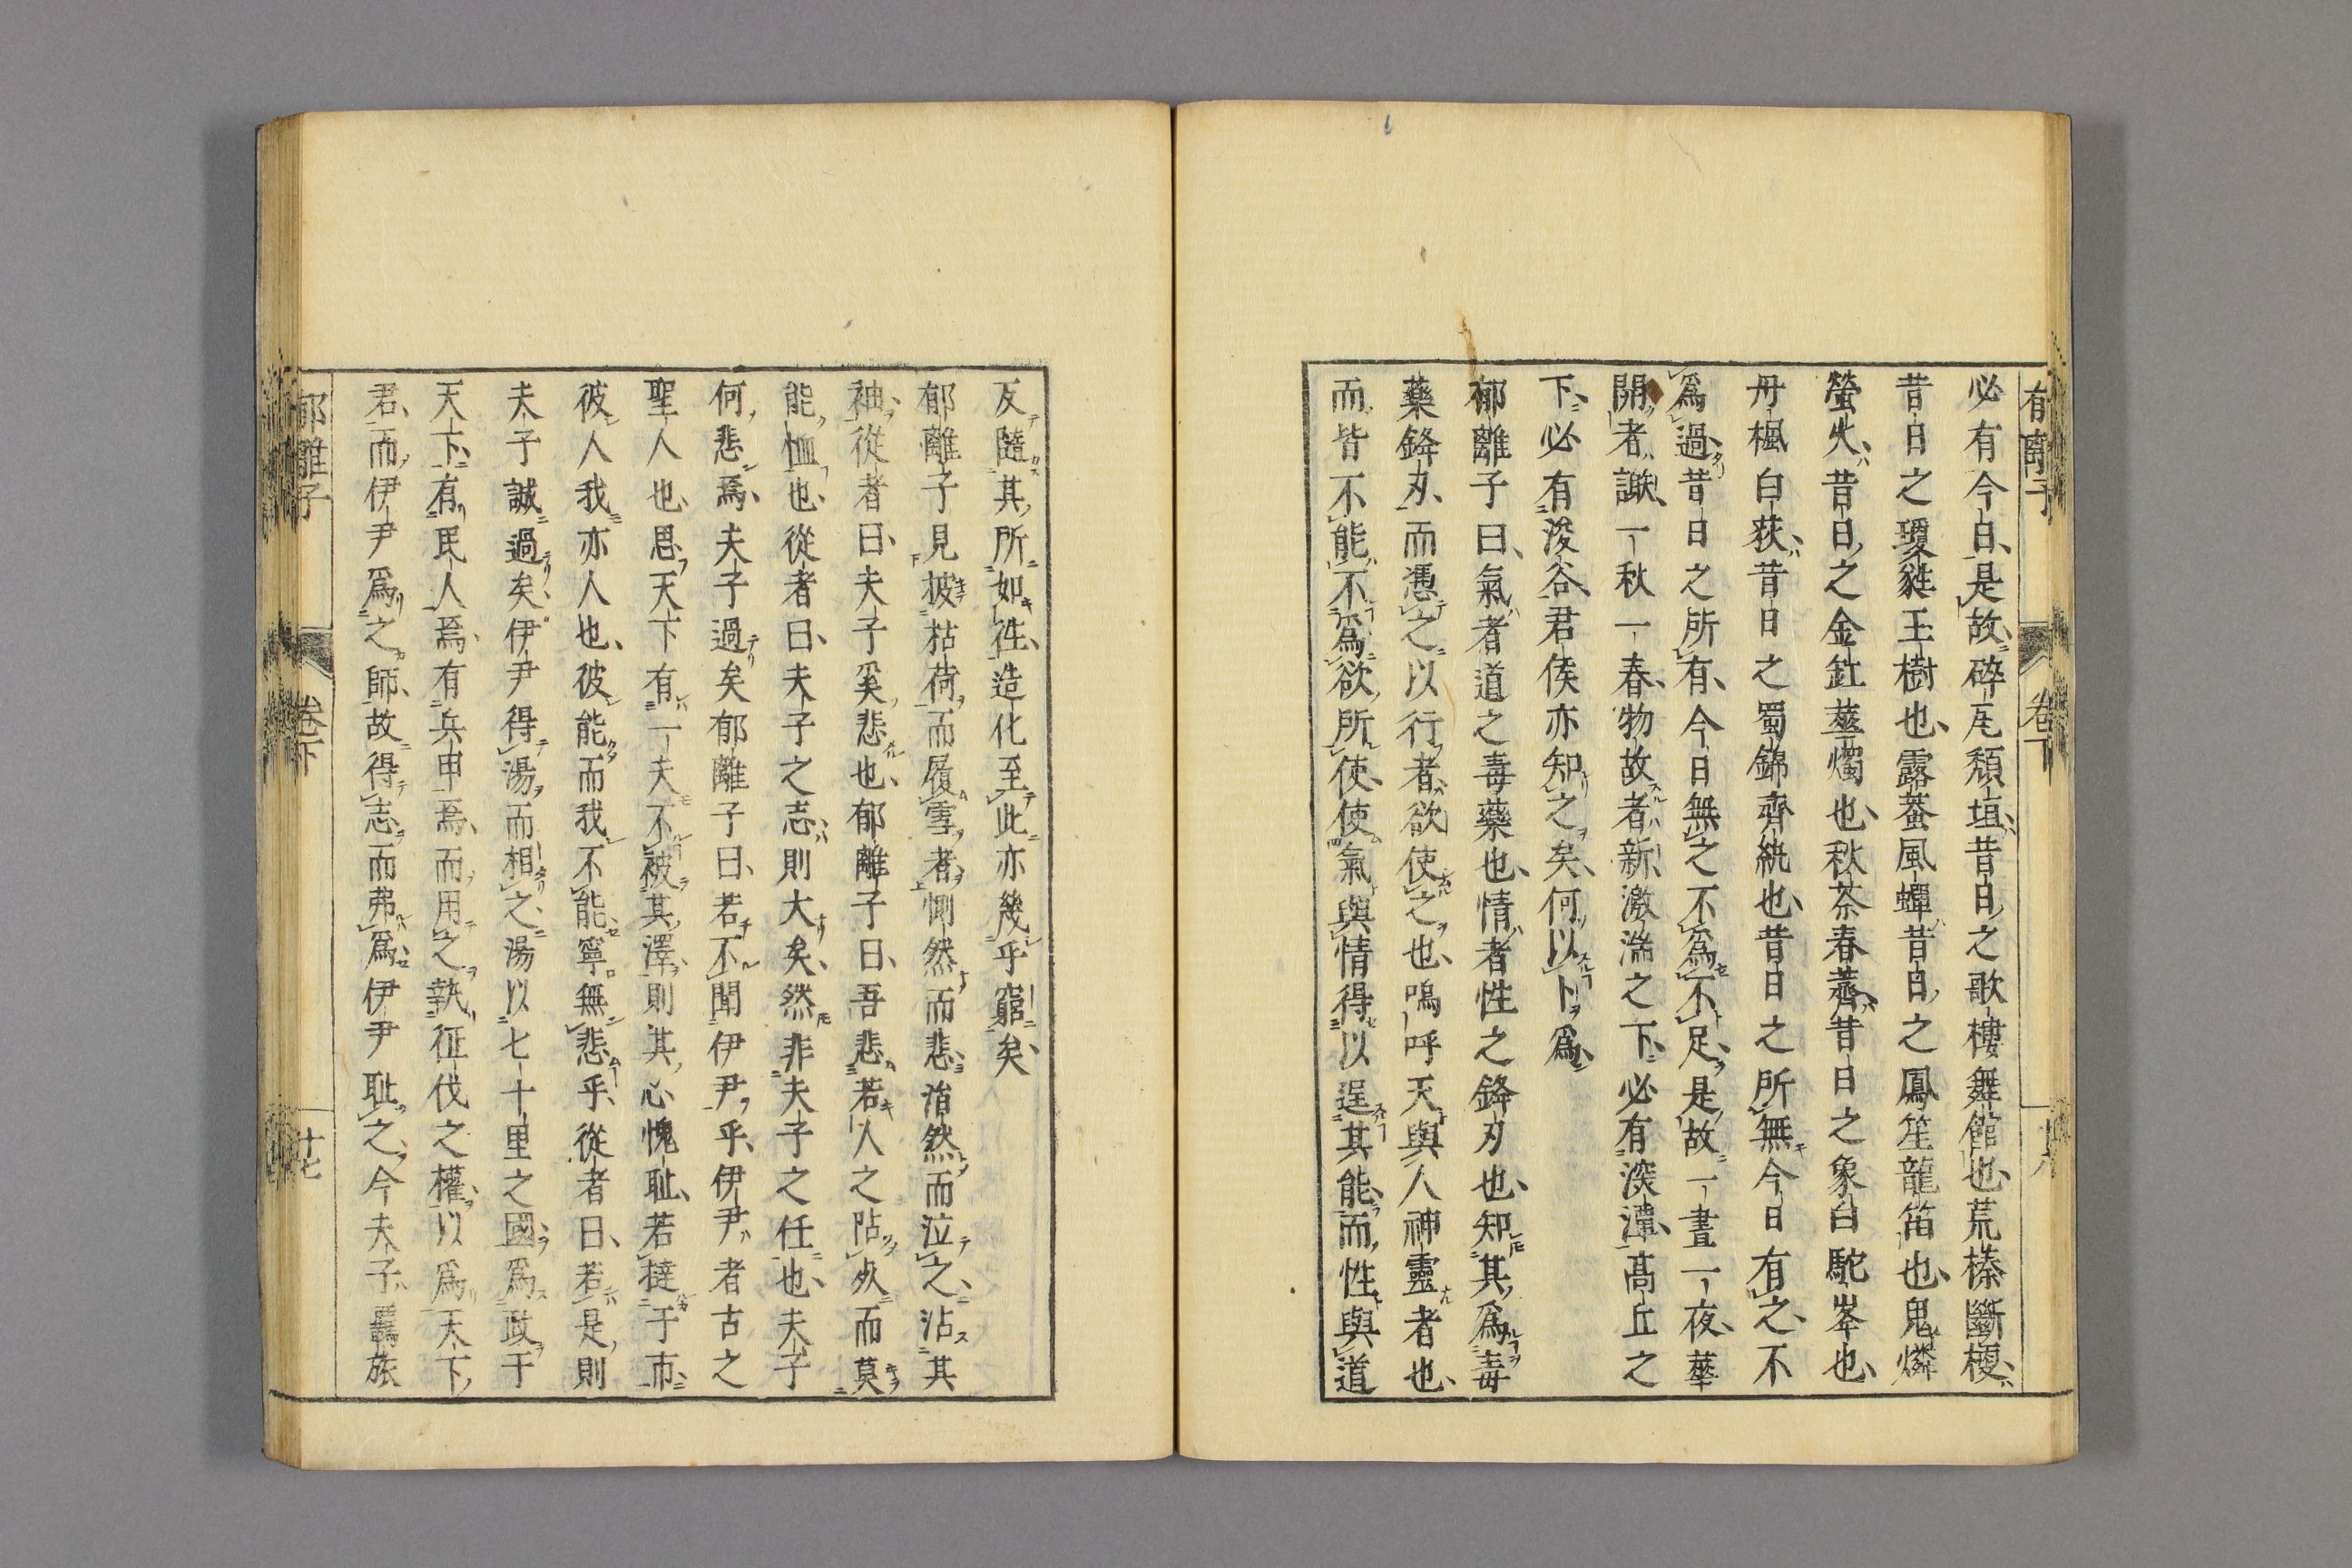 郁離子 卷下 十六
必有今日是故碎瓦頹垣昔日之歌樓舞館也荒榛斷梗
昔日之瓊蕤玉樹也露蛬風蟬昔日之鳳笙龍笛也鬼燐
螢火昔日之金釭華燭也秋荼春薺昔日之象白駝峯也
丹楓白荻昔日之蜀錦齊紈也昔日之所無今日有之不
爲過昔日之所有今日無之不爲不足是故一晝一夜華
開者謝一秋一春物故者新激湍之下必有深潭高丘之
下必有浚谷君侯亦知之矣何以卜爲
郁離子曰氣者道之毒藥也情者性之鋒刃也知其爲毒
藥鋒刃而憑之以行者欲使之也嗚呼天與人神靈者也
而皆不能不爲欲所使使氣與情得以逞其能而性與道
反隨其所如徃造化至此亦幾乎窮矣
郁離子見披枯荷而履雪者惻然而悲涓然而泣之沾其
袖從者曰夫子奚悲也郁離子曰吾悲若人之阽死而莫
能恤也從者曰夫子之志則大矣然非夫子之任也夫子
何悲焉夫子過矣郁離子曰若不聞伊尹乎伊尹者古之
聖人也思天下有一夫不被其澤則其心愧耻若撻于市
彼人我亦人也彼能而我不能寧無悲乎從者曰若是則
夫子誠過矣伊尹得湯而相之湯以七十里之國爲政于
天下有民人焉有兵甲焉而用之執征伐之權以爲天下
君而伊尹爲之師故得志而弗爲伊尹耻之今夫子羈旅
郁離子 卷下 十七